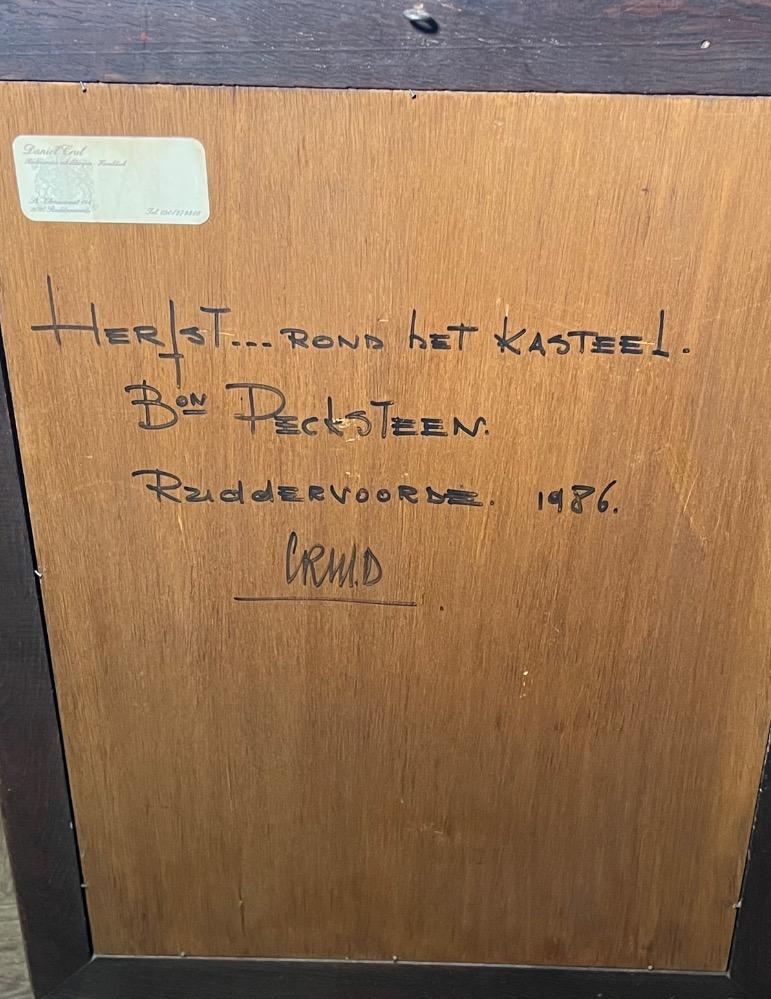 Daniel Crul
Tel. 050/27
HERfsT... ROND hET KASTEEL.
BON PECKSTEEN.
RuddERVOORDE. 1986.
CRul.D